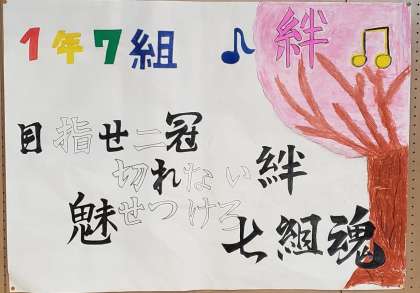 1年7組 ♪ 絆 ♫
目指せ二冠
切れない絆
魅せつけろ
七組魂